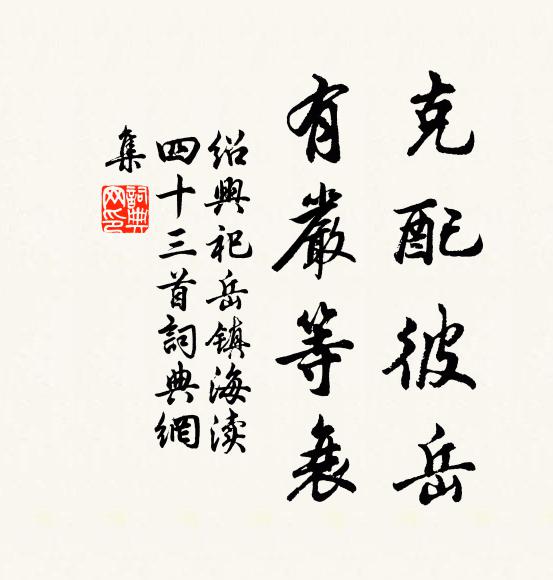 克配彼岳
有嚴等衰
紹興祀岳鎮海渎
四十三首詞典網
集
詞典网印